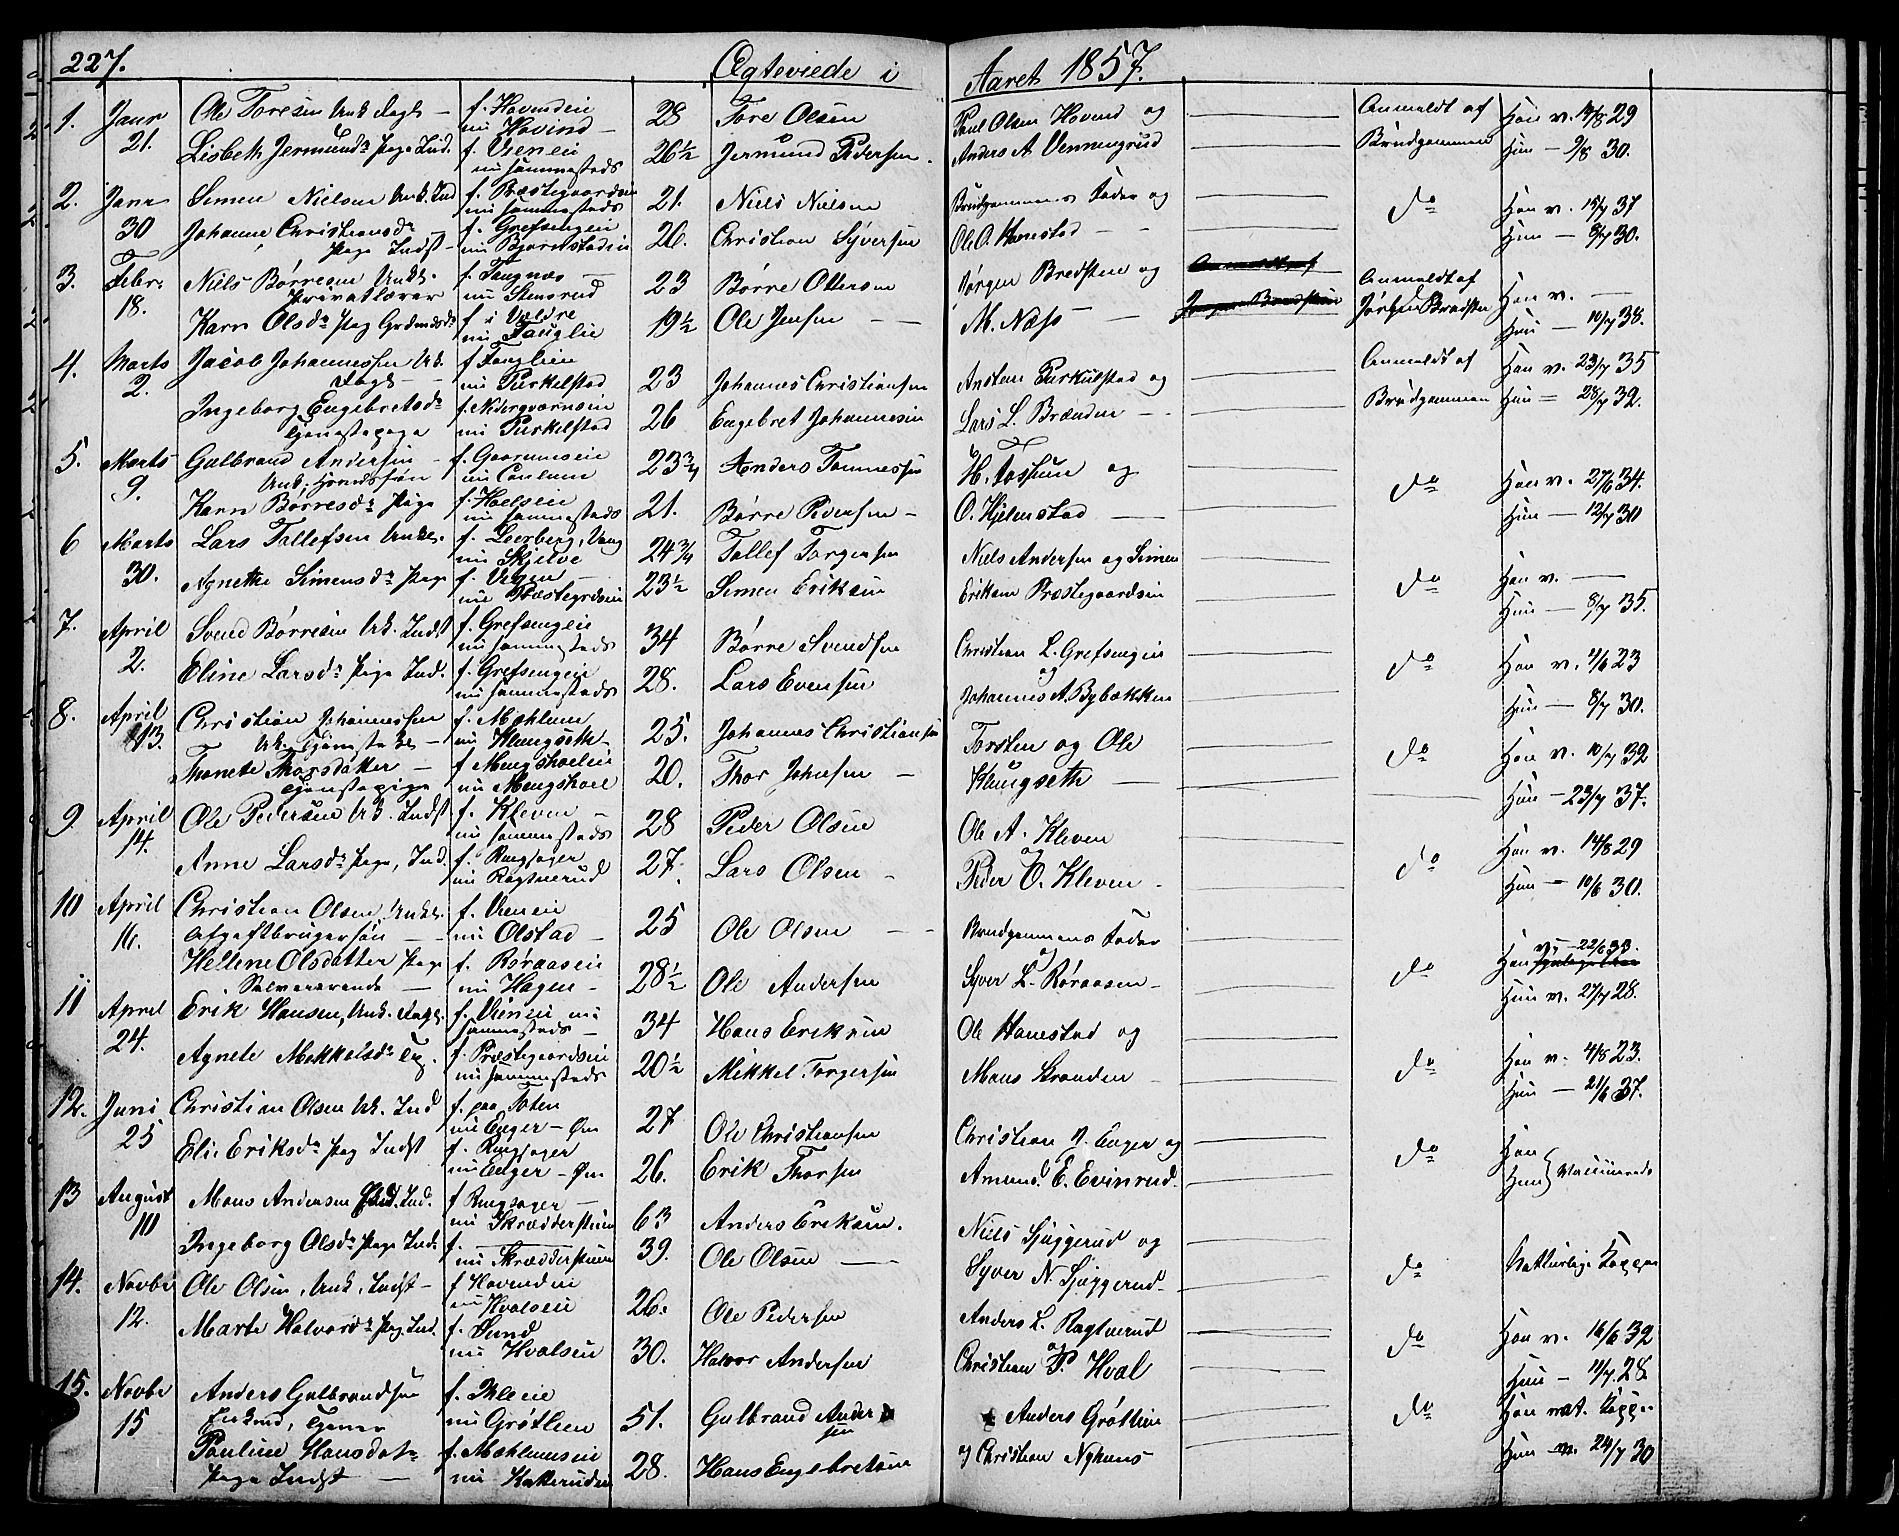 227. Ægteviede i Aaret 1857.
1. Janr 21. Ole Toresen Unk. Dags - f. Hovendeie nu Hovind - 28 Tore Olsen Poul Olsen Hovend og Anmeldt af Han v. 14/8 29
Lisbeth Jermundsdr Pige Ind. f. Vieneie nu sammesteds 26½ Jermund Pedersen. Anders A Venmengrud Brudgommen Hun - 9/8 30.
2. Janr 30 Simen Nielsen Unk. Ind f. Præstegaardseie nu sammesteds 21. Niels Nielsen Brudgommens Fader og do Han v. 15/7 37
Johanne Christiansdr Pige Indst - f. Grefsengeie nu Bjørnstadeie 26. Christian Syversen Ole O. Hanestad - Hun - 8/7 30.
3. Febr. 18. Niels Børresen Unk. Privatlærer f. Tangnæs nu Stensrud 23 Børre Ottersen Jørgen Bredsten og Anmeldt af Han v. -
Karn Olsdr Pig Grdmdsdr f. i Valdre nu Fauglie 19½ Ole Jensen - M. Næss - Jørgen Bredsten Hun - 10/7 38.
4. Marts 2. Jacob Johannessen Unk. Dags - f. Fauglien nu Purkelstad 23 Johannes Christiansen Amsten Purkulstad og Anmeldt af Han v. 23/7 35
Ingeborg Engebretsdr Tjenestepige f. Nedergaardseie nu Purkelstad 26 Engebret Johannesen Lars L. Brænden - Brudgommen Hun - 28/7 32.
5. Marts 9. Gulbrand Andersen - Unk. f. Gaarumseie nu 23¾ Anders Tommessen H. Fossum og do Han v. 27/6 34.
Karn Børresdr Pige f. Hoelseie nu sammesteds 21. Børre Pedersen - O. Hjelmstad - Hun - 12/7 30
6 Marts 30. Lars Tollefsen Unk. f. Leerberg, Vang nu Skjelve 24¾ Tollef Torgersen Niels Andersen og Simen do Han v. -
Agnethe Simensdr Pige f. Vegen nu Præstegrdseie 23½ Simen Eriksen Eriksen Præstegaardseie Hun - 8/7 35.
7. April 2. Svend Børresen Uk. Indst f. Grefsengeie nu sammesteds 34 Børre Svendsen Christian L. Grefsengeie og do Han v. 4/6 23
Eline Larsdr Pige Ind. f. Grefsengeie nu sammesteds 28. Lars Evensen Johannes A. Bybækken Hun - 8/7 30.
8. April 13. Christian Johannessen Uk. - f. Mæhlum nu Klungseth - 25. Johannes Christiansen Torsten og Ole do Han v. 10/7 39
Thonete Thorsdatter - Tjenestepige f. Mengshoeleie nu Mengshoel 20. Thor Johnsen - Klungseth - Hun - 23/7 37.
9. April 14. Ole Pedersen Uk. Indst f. Kleven - nu sammesteds 28 Peder Olsen Ole A. Kleven og do Han v. 14/8 29
Anne Larsdr Pige, Ind. f. Ringsager nu Ragtnerud 27. Lars Olsen - Peder O. Kleven - Hun - 10/6 30.
10 April 16. Christian Olsen, Unk. afgaftbrugersøn - f. Vieneie nu Olstad - 25 Ole Olsen - Brudgommens Fader og do Han v. 22/6 33.
Hellene Olsdatter Pige Selverærende - f. Røraaseie nu Hagen - 28½ Ole Andersen Syver L. Røraasen - Hun v. 27/7 28.
11 April 24. Erik Hansen, Unk. Dags. f. Vieneie nu sammesteds - 34 Hans Eriksen Ole Hanestad og do Han v. 4/8 23.
Agnete Mikkelsdr f. Præstegaardseie nu sammesteds 20½ Mikkel Torgersen Mons Stranden - Hun - 21/6 37.
12. Juni 25 Christian Olsen Uk. Ind f. paa Toten nu Enger - Øen 27 Ole Christiansen Christian J. Enger og do Han
Elie Eriksdr Pig Indst f. Ringsager nu Enger - Øen 26. Erik Thorsen Amund. E. Evinrud - Hun } Vaccinerede
13 August 10 Mons Andersen Ind. f. Ringsager - nu Skrædderstuen 63 Anders Eriksen. Niels Sjuggerud og do Naturlige Kopper
Ingeborg Olsdr Pige Ind. f. - nu Skrædderstuen 39. Ole Olsen - Syver N. Sjuggerud -
14. Novbr 12. Ole Olsen, Unk, Indst - f. Hovendeie nu Hvalseie 26. Ole Pedersen Anders L. Ragtnerud og do Han v. 16/6 32
Marte Halvordr Pig. Ind. f. Sund nu Hvalseie 30. Halvor Andersen Christian P. Hval Hun - 11/7. 28
15. Novbr 15 Anders Gulbrandsen Enkmd, f. Kleeie nu Grøtlien 51. Gulbrand Andersen Anders Grøtlien do Han nat. Kopper
Pauline Hansdatr Pige Indst - f. Mæhlumseie nu Katterudeie 28. Hans Engebretsen og Christian Nyhuus Hun - 24/7 30